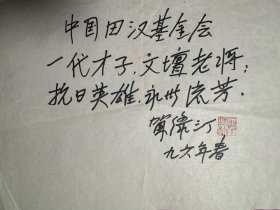 中国田汉基金会
一代才子，文壇老将；
抗日英雄，永世流芳。
贺绿汀
九六年春